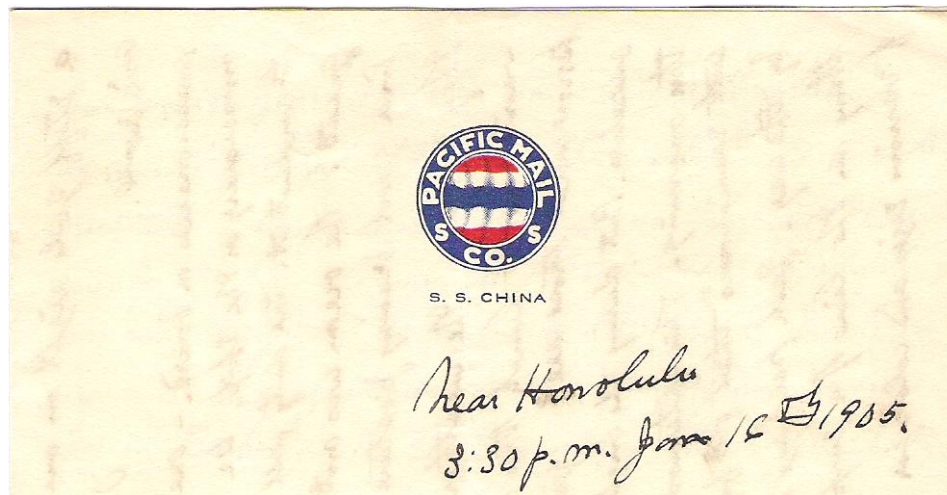 PACIFIC MAIL
S S
CO.
S. S. CHINA
near Honolulu
3:30 p.m. 16th 1905.